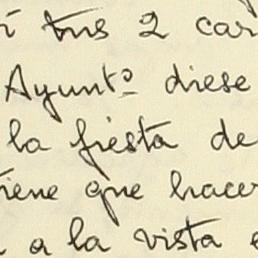 tus 2 car
Ayuntº diese
la fiesta de
tiene que hacer
a la vista